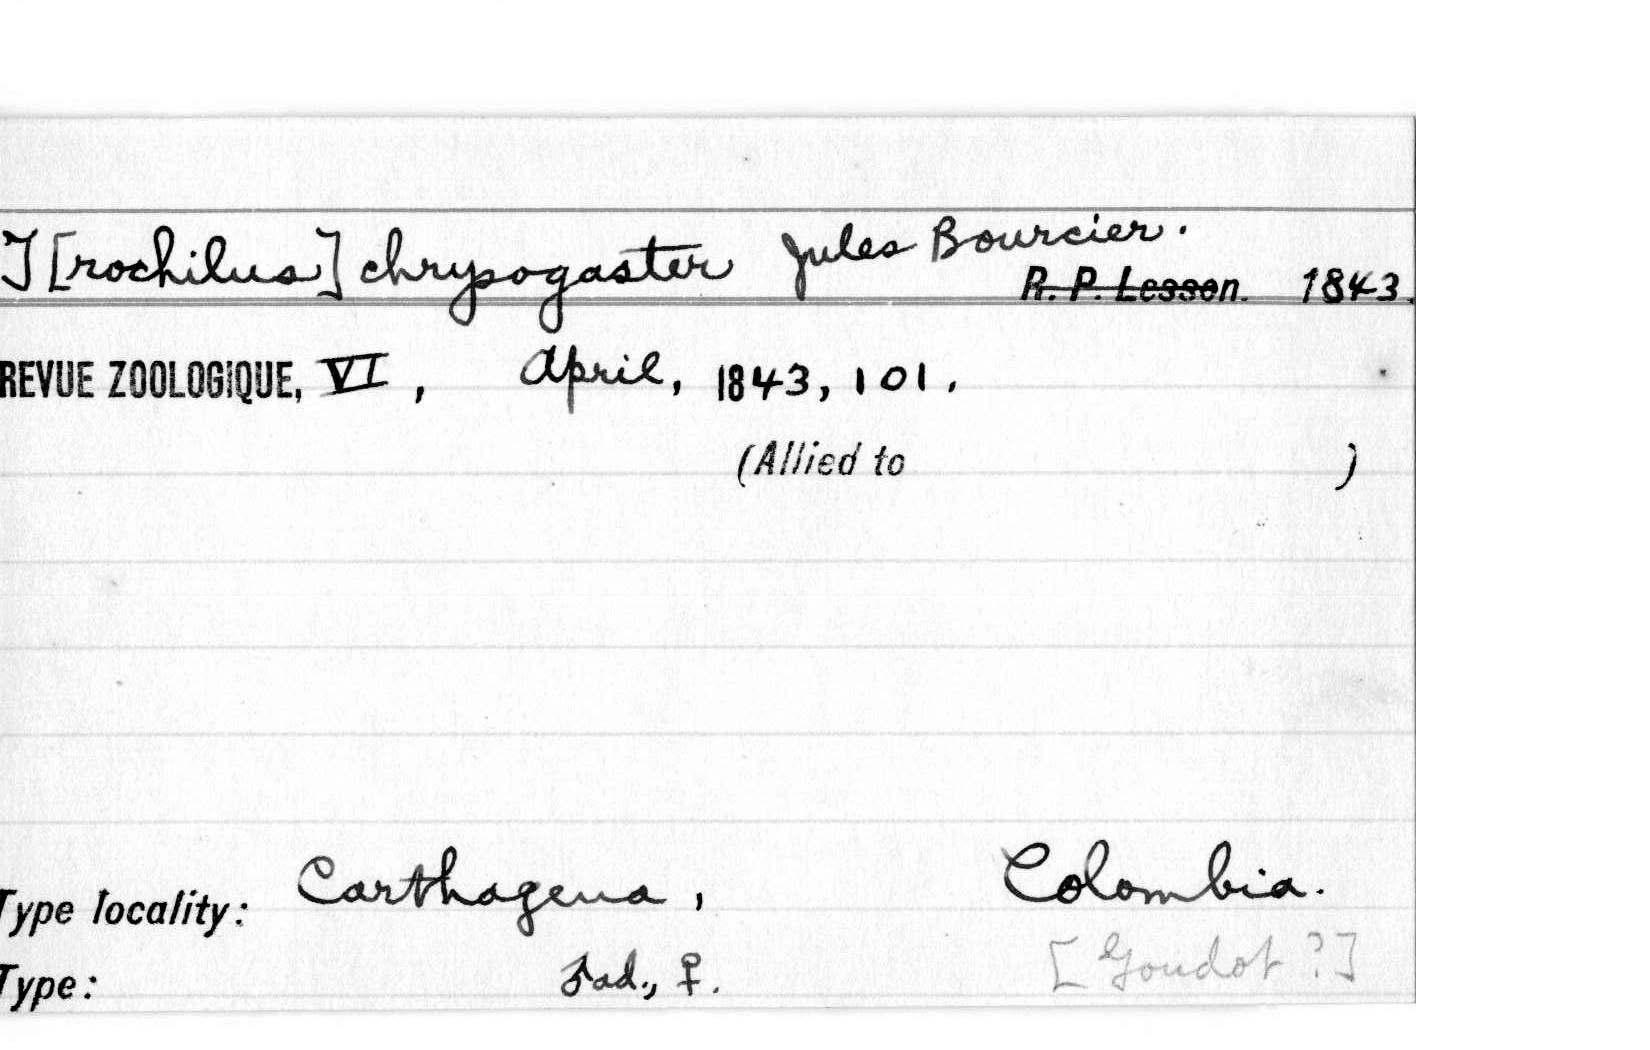 T[rochilus] chrysogaster Jules Bourcier.
R. P. Lesson. 1843.
REVUE ZOOLOGIQUE, VI, April, 1843, 101.
(Allied to )
Type locality: Carthagena, Colombia.
Type: ♂ad., ♀. [Goudot ?]